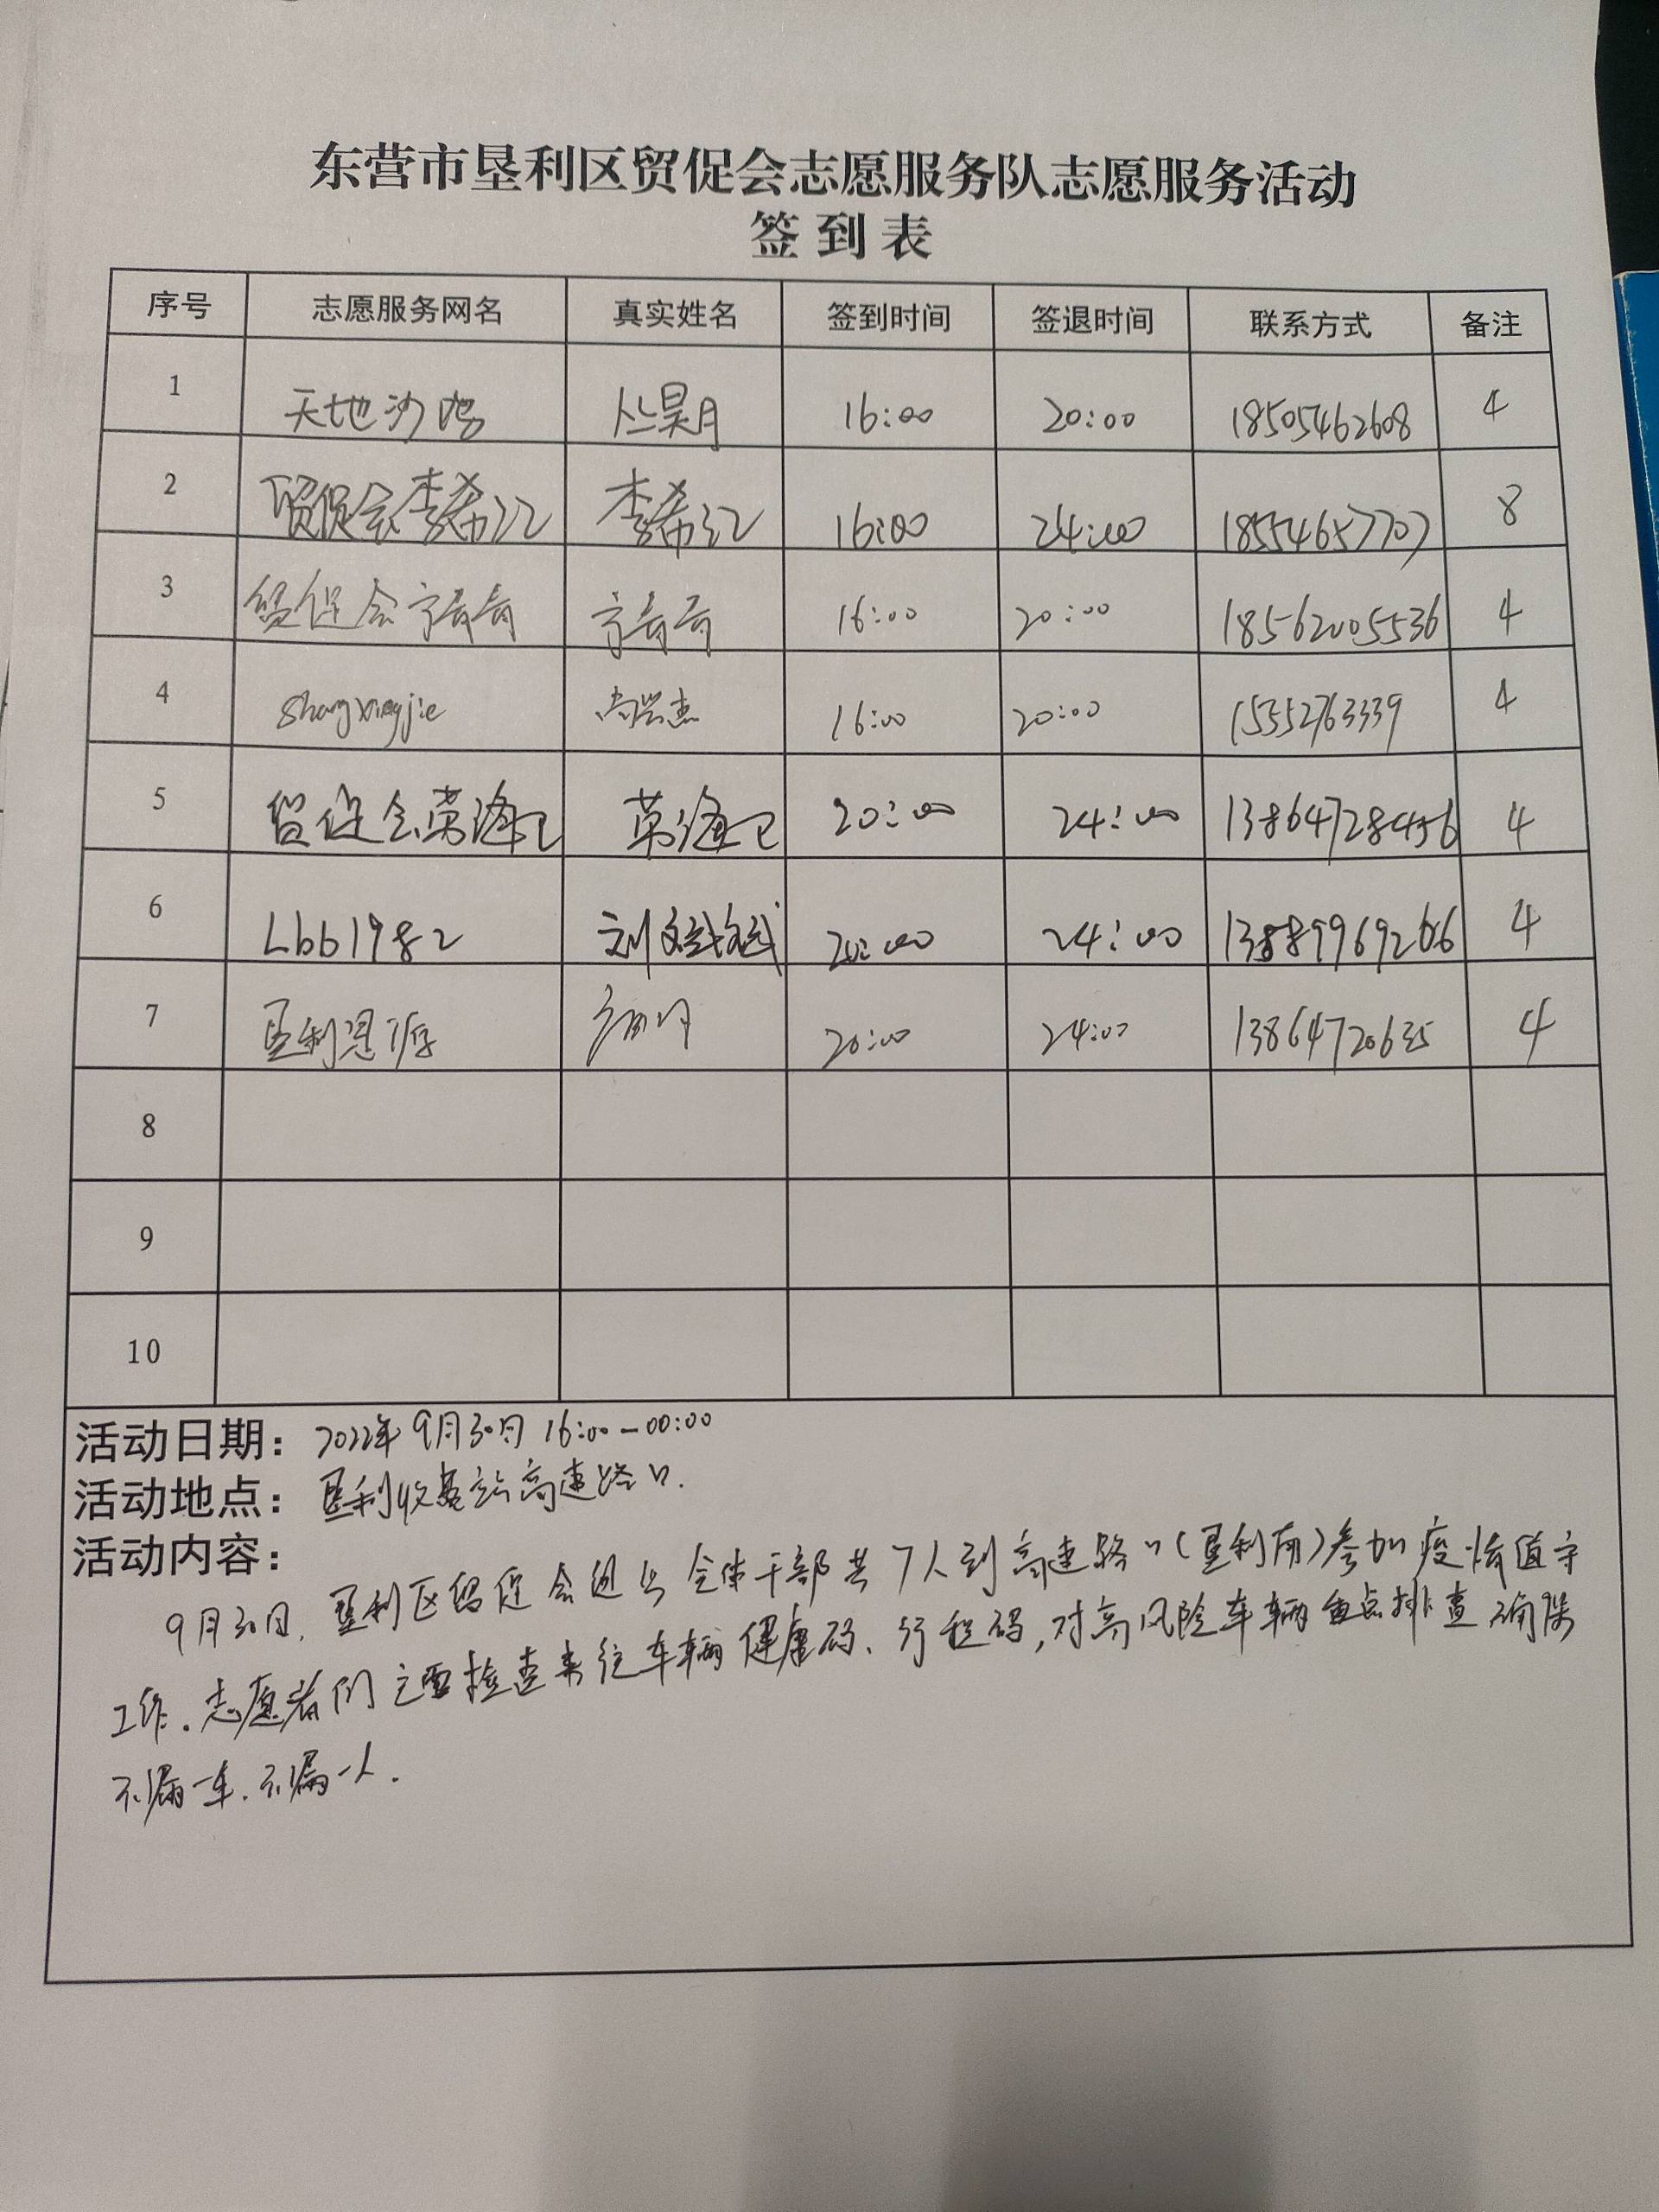 东营市垦利区贸促会志愿服务队志愿服务活动
签到表
序号 志愿服务网名 真实姓名 签到时间 签退时间 联系方式 备注
1 天地沙鸥 丛昊月 16:00 20:00 18505462608 4
2 贸促会李希江 李希江 16:00 24:00 18554657707 8
3 贸促会方奇奇 方奇奇 16:00 20:00 18562005536 4
4 shangxingjie 尚兴杰 16:00 20:00 15552763339 4
5 贸促会 20:00 24:00 13864728456 4
6 Lbb1982 刘斌斌 20:00 24:00 4
7 垦利 20:00 24:00 13864720635 4
8
9
10
活动日期：2022年9月30日 16:00-00:00
活动地点：垦利收费站高速路口.
活动内容：
9月30日，垦利区贸促会组织全体干部共7人到高速路口(垦利南)参加疫情值守
工作. 志愿者们主要检查来往车辆健康码、行程码,对高风险车辆重点排查 确保
不漏一车.不漏一人.